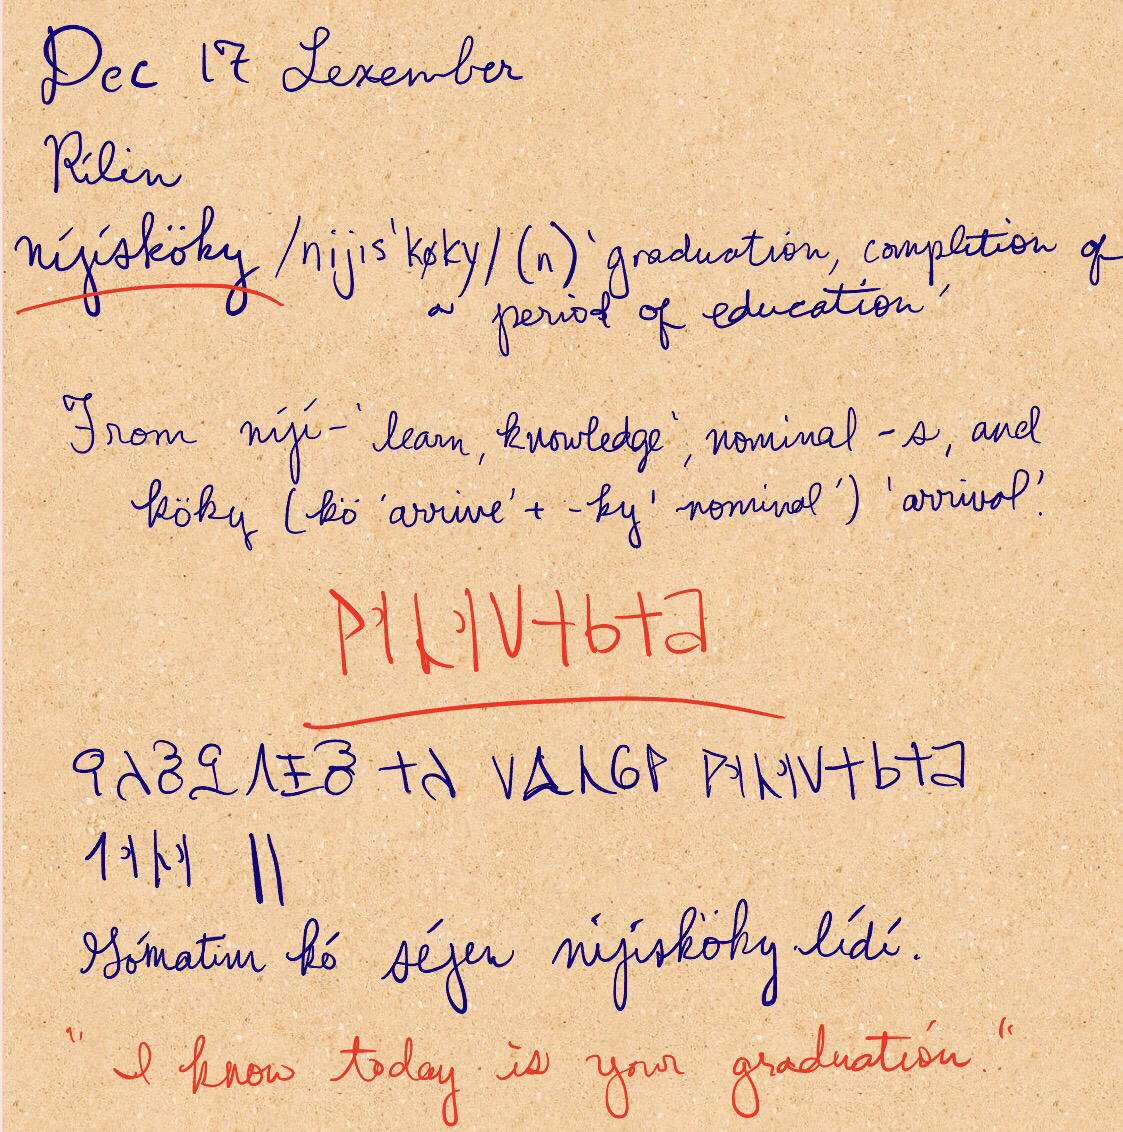 Dec 17 Lexember
Rílin
níjísköky /nijis'køky/ (n) 'graduation, completion of
a period of education'
From níjí- 'learn, knowledge', nominal -s, and
köky (kö 'arrive' + -ky 'nominal') 'arrival'.
Gómatim kó séjen níjísköky lídí.
"I know today is your graduation."